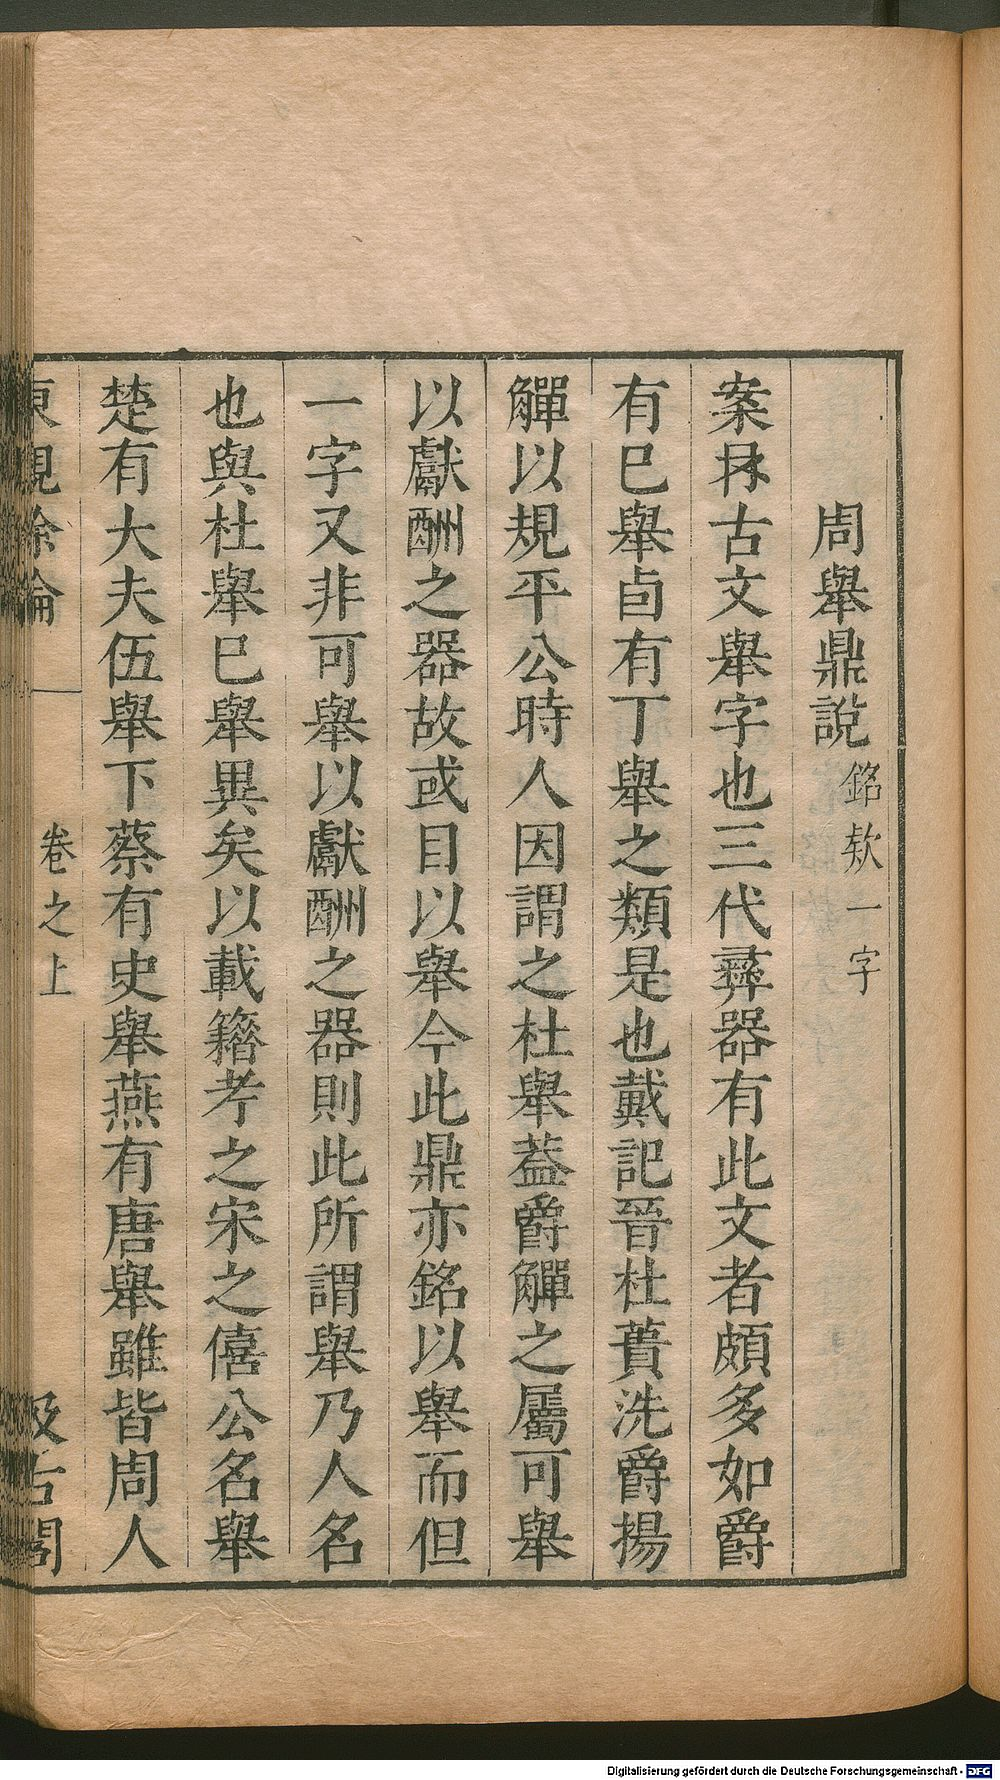 周舉鼎說銘欵一字
案古文舉字也三代彝器有此文者頗多如爵
有巳舉卣有丁舉之類是也戴記晉杜蕢洗爵揚
觶以規平公時人因謂之杜舉葢爵觶之屬可舉
以獻酬之器故或目以舉今此鼎亦銘以舉而但
一字又非可舉以獻酬之器則此所謂舉乃人名
也與杜舉巳舉異矣以載籍考之宋之僖公名舉
楚有大夫伍舉下蔡有史舉燕有唐舉雖皆周人
東觀餘論 卷之上 汲古閣
Digitalisierung gefördert durch die Deutsche Forschungsgemeinschaft - DFG